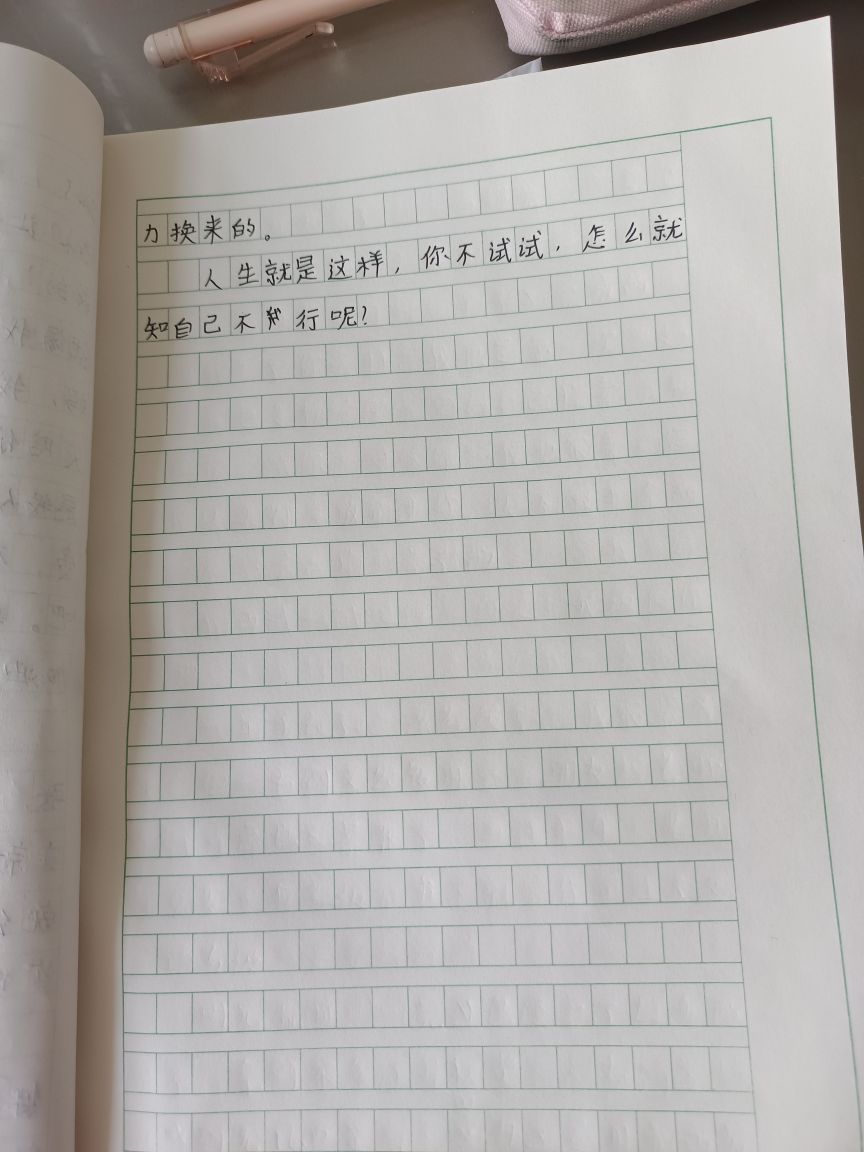 力换来的。
人生就是这样，你不试试，怎么就
知自己不行呢？